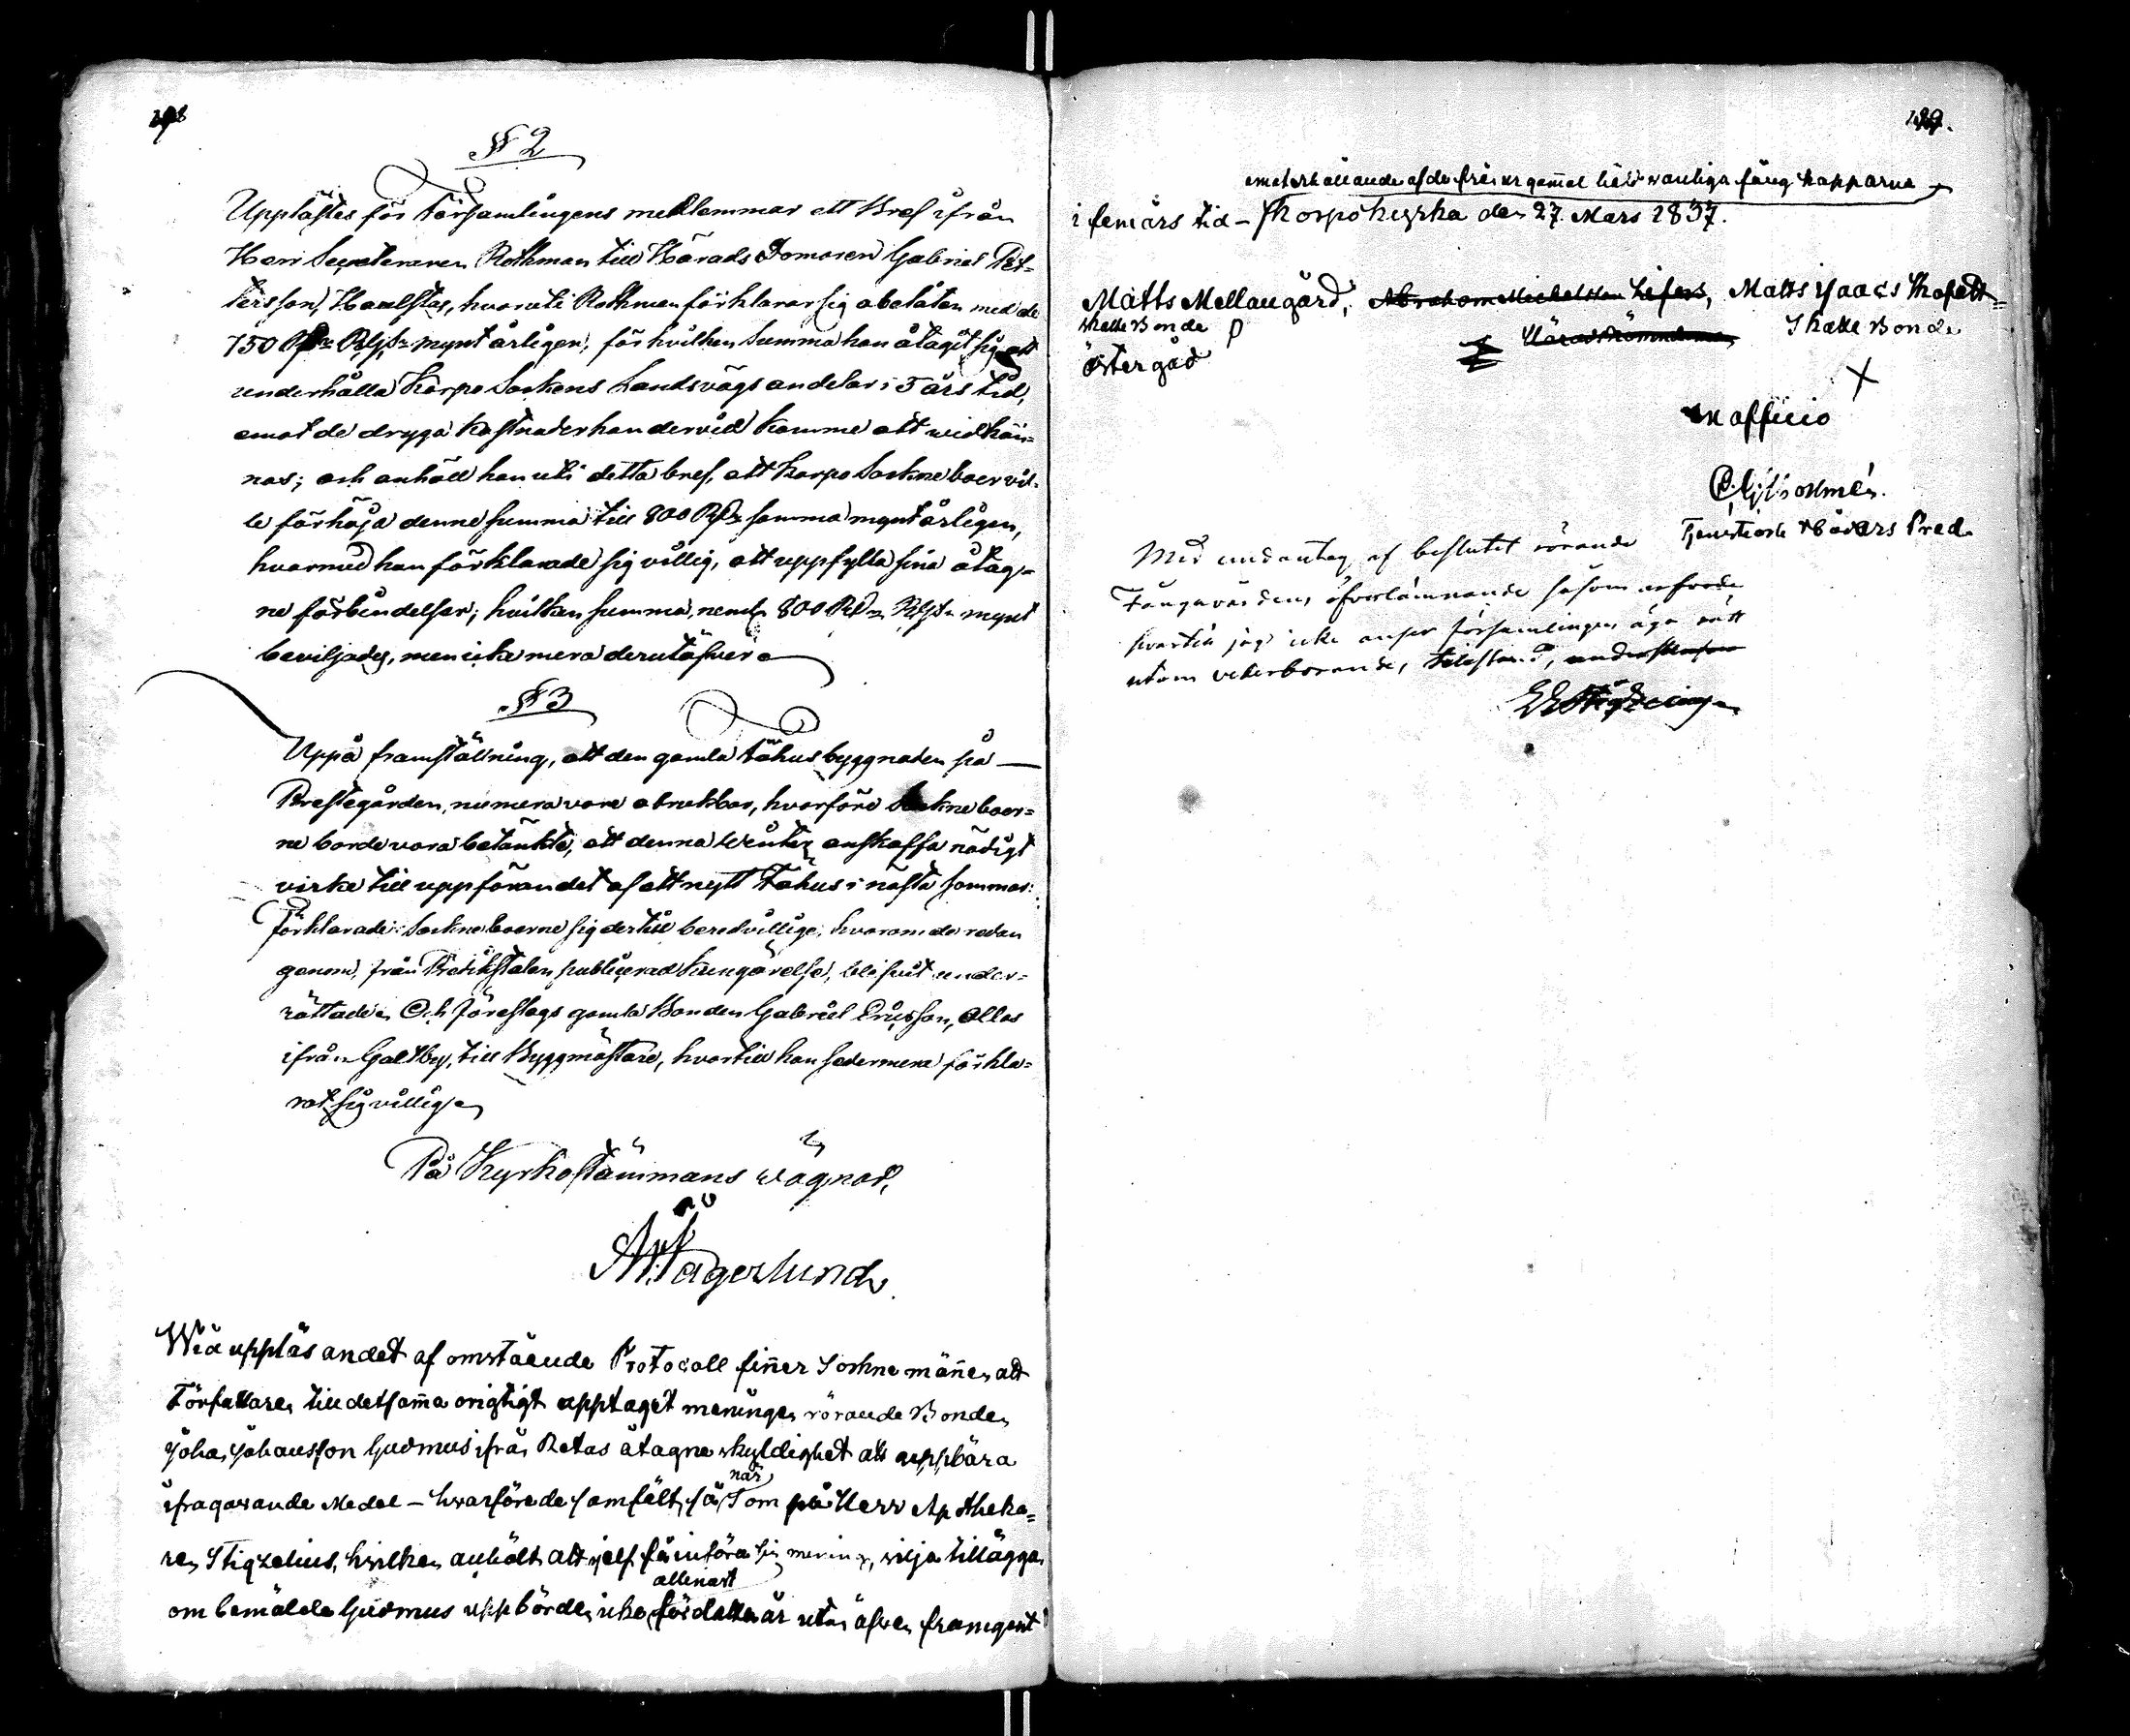 198
§ 2
Upplästes för Församlingens medlemmar ett Bref ifrån
Herr Secreteraren Rothman till Härads Domaren Gabriel Pet-
tersson, Havlstas, hvaruti Rothman förklarar sig obelåten med de
750 Rd:r Rgs:r mynt årligen, för hvilken Summa han åtagit sig att
underhålla Korpo Sockens Landsvägs andelar i 5 års tid,
emot de dryga kostnader han dervid komme att widkän-
nas; och anhöll han uti detta bref, att Korpo Sockneboer vil-
le förhöja denne summa till 800 Rd:r samma mynt årligen,
hvarmed han förklarade sig villig, att uppfylla sina åtag-
ne förbindelser; hvilken summa, neml. 800 Rd:r Rgs:r mynt
beviljades, men icke mera derutöfver
§ 3
Uppå framställning, att den gamla Fähus byggnaden på
Prestegården, numera vore obrukbar, hvarföre Sockneboer=
ne borde vara betänkte, att denna Winter anskaffa nödigt
virke till uppförandet af ett nytt Fähus i nästa sommar:
förklarade Sockneboerne sig dertill beredvillige, hvarom de redan
genom, från Predikstolen publicerad Kungörelse, blifvit under=
rättade. Och föreslogs gamla Bonden Gabriel Ericsson, Ollas
ifrån Galtby, till Byggmästare, hvartill han sedermera förkla=
rat sig villig
På Kyrkostämmans vägnar,
Fagerlund
Wid uppläsandet af omstående Protocoll finner Sockne männen att
Författaren till detsamma origtigt upptaget meningen rörande Bonden
Johan Johansson Gudmus ifrån Retas åtagne skyldighet att uppbära
ifrågavande Medel - hvarföre de samfält, så när
som på Herr Apotheka=
ren Stigzelius, hvilken anhölt att sjelf få införa sin mening, vilja tillägga
om bemälde Gudmus uppbörden icke allenast
för detta år utan äfven framgent
199.
emot erhållande af de från ur gammal tid vanliga fång kapparna
i fem års tid - Korpo kyrka den 27. Mars 1837.
Matts Mellangård, Abraham Mickelsson Lifers, Matts Isaacs
Skatte Bonde Häradsdömmdomen Skatte Bonde
östergåd
ex officio
Tjenstförr: Bävers Pred.
Med undantag af beslutet rörande
Fångavårdens öfverlämnande såsom
hvartill jag icke anser församlingen äga rätt
utom vederbörande,